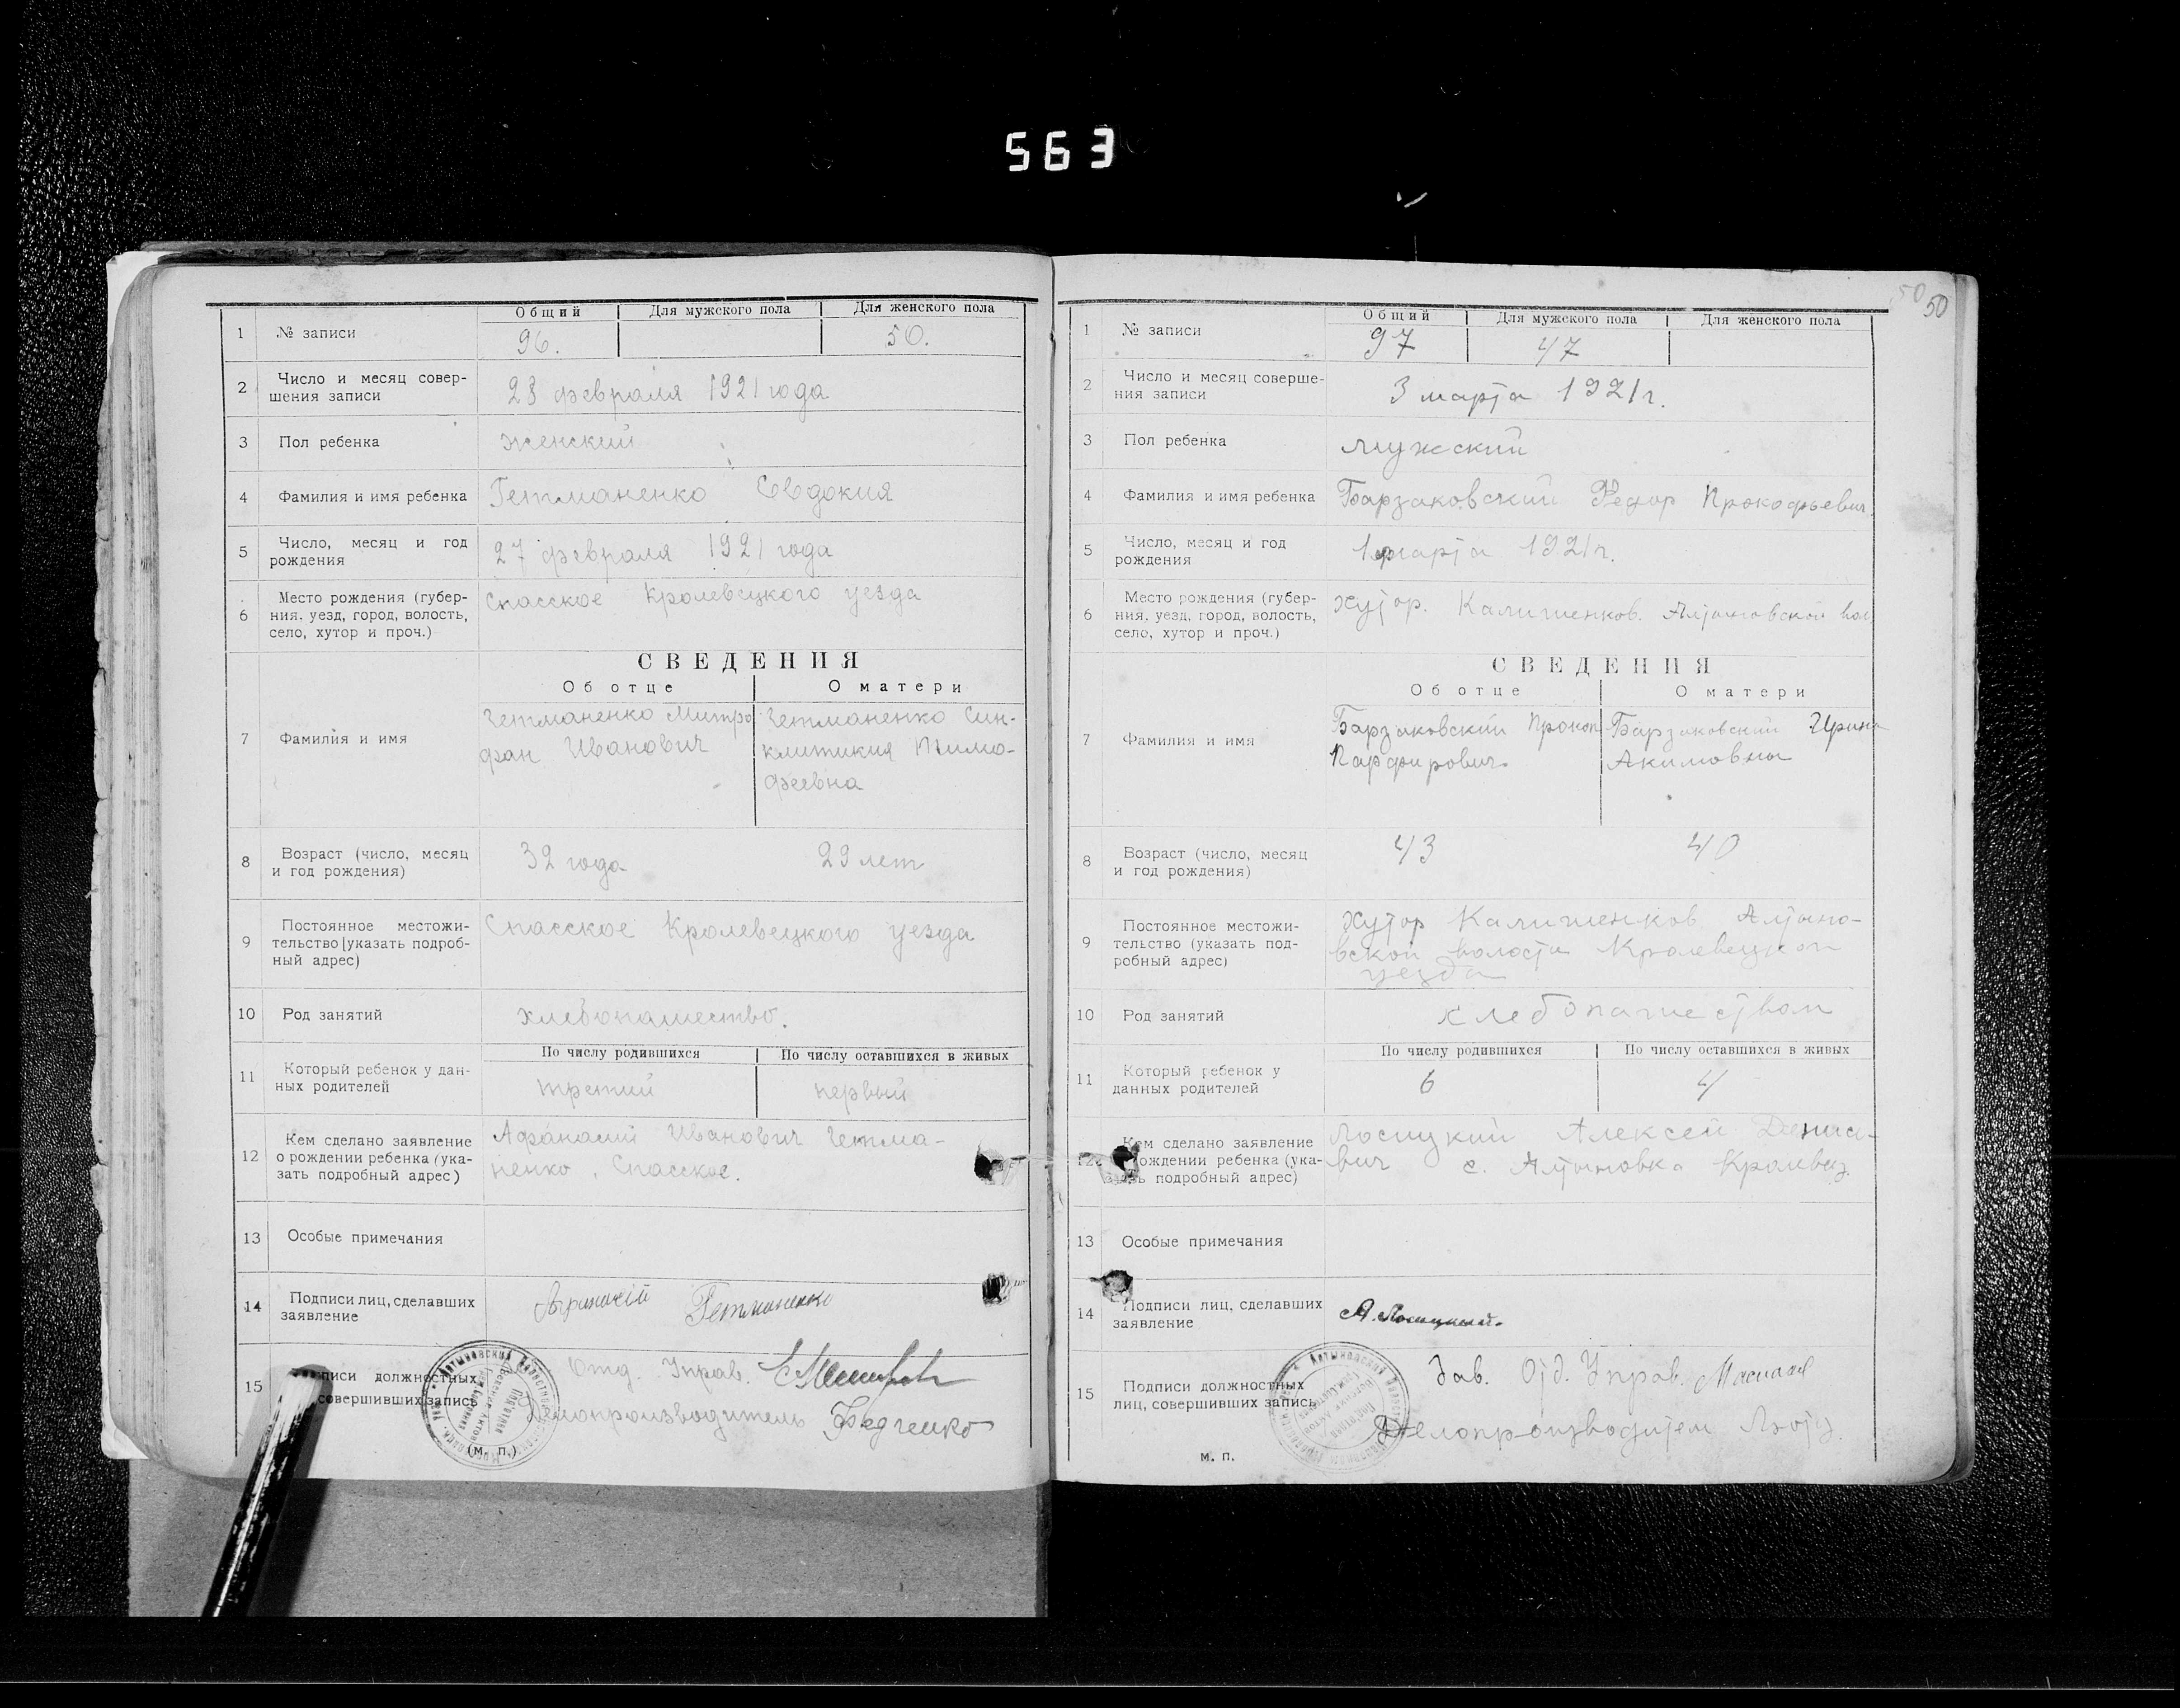 563
50 50
Общий Для мужского пола Для женского пола
1 № записи 96. 50.
2 Число и месяц совер-
шения записи
28 февраля 1921 года
3 Пол ребенка женский
4 Фамилия и имя ребенка Гетманенко Евдокия
5 Число, месяц и год
рождения
27 февраля 1921 года
6 Место рождения (губер-
ния. уезд, город, волость,
село, хутор и проч.)
Спасское Кролевецкого уезда
СВЕДЕНИЯ
Об отце О матери
7 Фамилия и имя
Гетманенко Митро
фан Иванович
Гетманенко Син-
клитикия Тимо-
феевна
8 Возраст (число, месяц
и год рождения)
32 года 29 лет
9 Постоянное местожи-
тельство (указать подроб-
ный адрес)
Спасское Кролевецкого уезда
10 Род занятий хлебопашество.
По числу родившихся По числу оставшихся в живых
11 Который ребенок у дан-
ных родителей
третий первый
12 Кем сделано заявление
о рождении ребенка (ука-
зать подробный адрес)
Афанасий Иванович Гетма-
ненко, Спасское.
13 Особые примечания
14 Подписи лиц, сделавших
заявление
Афанасій Гетманенко
15 писи должностных
совершивших запись
Отд. Управ.
Делопроизводитель Федченко
(м. п.)
Общий Для мужского пола Для женского пола
1 № записи 97 47
2 Число и месяц соверше-
ния записи
3 марта 1921 г.
3 Пол ребенка мужский
4 Фамилия и имя ребенка Барзаковский Федор Прокофьевич
5 Число, месяц и год
рождения
1 марта 1921 г.
6 Место рождения (губер-
ния, уезд, город, волость,
село, хутор и проч.)
хутор. Калишенков. Алтыновской вол
СВЕДЕНИЯ
Об отце О матери
7 Фамилия и имя
Барзаковский Прокоп
Парфирович
Барзаковский Ирина
Акимовна
8 Возраст (число, месяц
и год рождения)
43 40
9 Постоянное местожи-
тельство (указать под-
робный адрес)
хутор Калишенков Алтыно-
вской волости Кролевецкого
уезда
10 Род занятий хлебопашеством
По числу родившихся По числу оставшихся в живых
11 Который ребенок у
данных родителей
6 4
12 Кем сделано заявление
рождении ребенка (ука-
зать подробный адрес)
Лосицкий Алексей
вич с. Алтыновка Кролевец.
13 Особые примечания
14 Подписи лиц, сделавших
заявление
А. Лосицкий.
15 Подписи должностных
лиц, совершивших запись
Зав. Отд. Управ.
Делопроизводител
м. п.